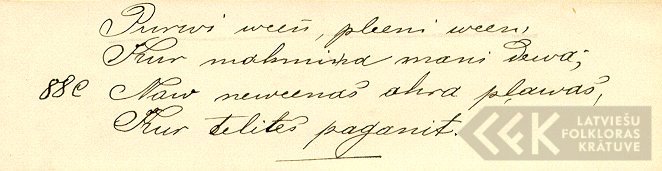 Purwi ween, pleeni ween,
Kur mahmiņa mani dewa;
88e Naw neweenas ahra pļawas,
Kur telites paganit.
LATVIEŠU
FOLKLORAS
KRĀTUVE